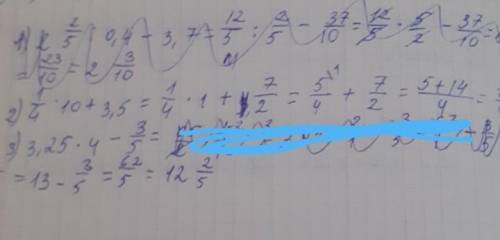 1) 2 2/5 : 0,4 - 3,7 = 12/5 : 2/5 - 37/10 = 12/5 · 5/2 - 37/10 =
= 23/10 = 2 3/10
2) 1/4 · 10 + 3,5 = 1/4 · 1 + 7/2 = 5/4 + 7/2 = 5+14/4 =
3) 3,25 · 4 - 3/5 =
= 13 - 3/5 = 62/5 = 12 2/5